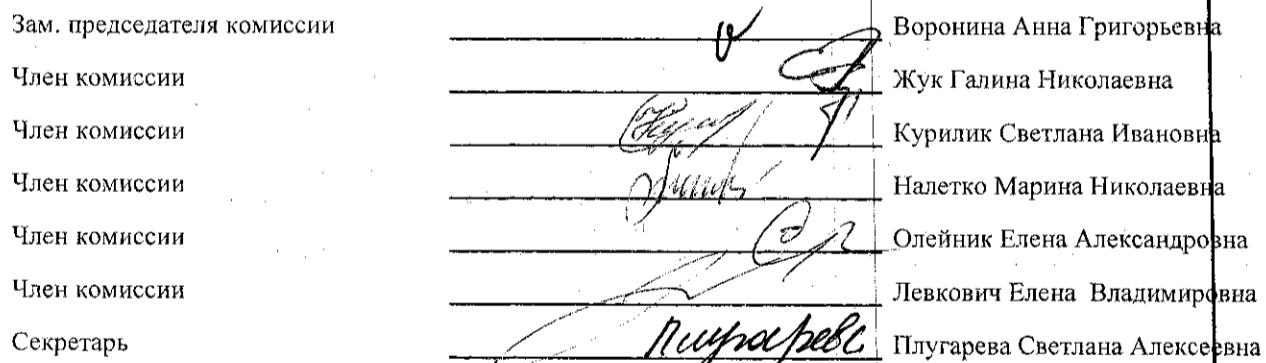 Зам. председателя комиссии Воронина Анна Григорьевна
Член комиссии Жук Галина Николаевна
Член комиссии Курилик Светлана Ивановна
Член комиссии Налетко Марина Николаевна
Член комиссии Олейник Елена Александровна
Член комиссии Левкович Елена Владимировна
Секретарь Плугарева Светлана Алексеевна